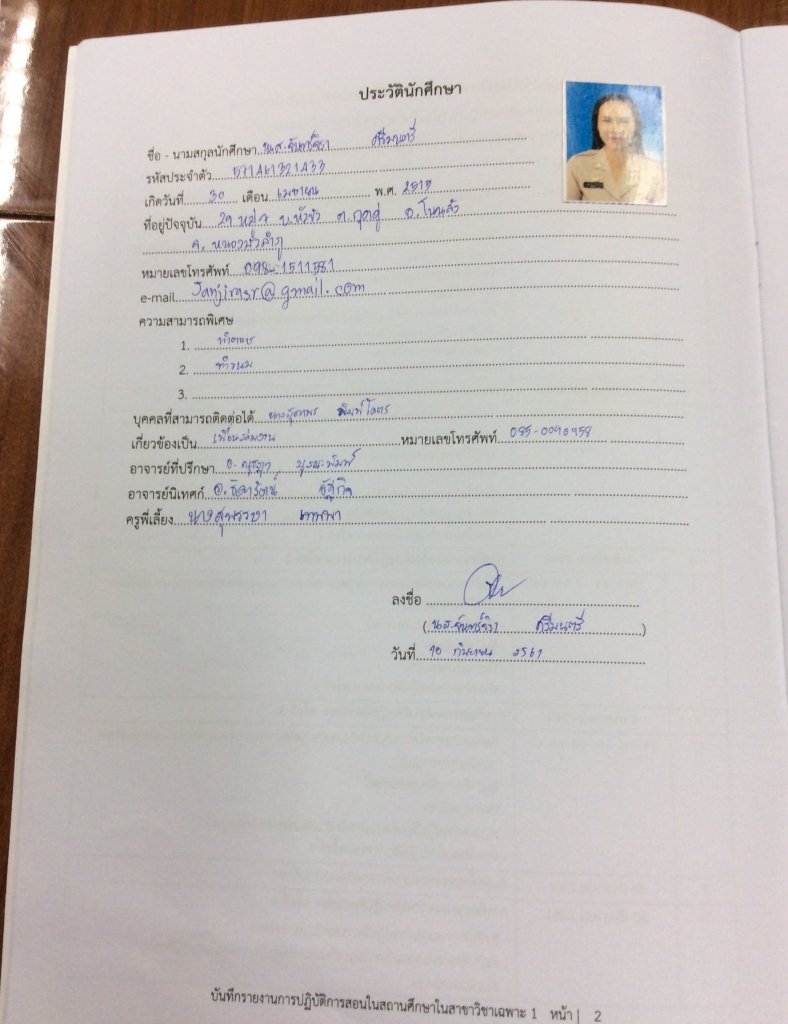 ประวัตินักศึกษา
ชื่อ - นามสกุลนักศึกษา น.ส.จันทร์จิรา ศรีมนตรี
รหัสประจำตัว 57146132143
เกิดวันที่ 30 เดือน เมษายน พ.ศ.
ที่อยู่ปัจจุบัน 29 หมู่ บ.หัวขัว ต.กุดดู่ อ.โนนสัง
จ. หนองบัวลำภู
หมายเลขโทรศัพท์
e-mail Janjirasr@gmail.com
ความสามารถพิเศษ
1. ทำอาหาร
2. ทำขนม
3.
บุคคลที่สามารถติดต่อได้ นางสุดาพร พิมพ์โคตร
เกี่ยวข้องเป็น เพื่อนร่วมงาน หมายเลขโทรศัพท์ 085-0096958
อาจารย์ที่ปรึกษา อ.
อาจารย์นิเทศก์ อ.ธิดารัตน์
ครูพี่เลี้ยง นางสุพรรษา เทพพา
ลงชื่อ
( น.ส.จันทร์จิรา ศรีมนตรี )
วันที่ 10 กันยายน 2561
บันทึกรายงานการปฏิบัติการสอนในสถานศึกษาในสาขาวิชาเฉพาะ 1 หน้า | 2